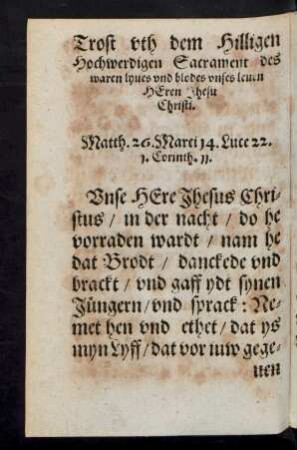 Trost vth dem Hilligen
Hochwerdigen Sacrament des
waren lyues vnd blodes vnses leuen
HEren Jhesu
Christi.
Matth. 26. Marci 14. Luce 22.
1. Corinth. 11.
Vnse HEre Jhesus Chri-
stus / in der nacht / do he
vorraden wardt / nam he
dat Brodt / danckede vnd
brackt / vnd gaff ydt synen
Jüngern / vnd sprack: Ne-
met hen vnd ethet / dat ys
myn Lyff / dat vor iuw gege-
uen